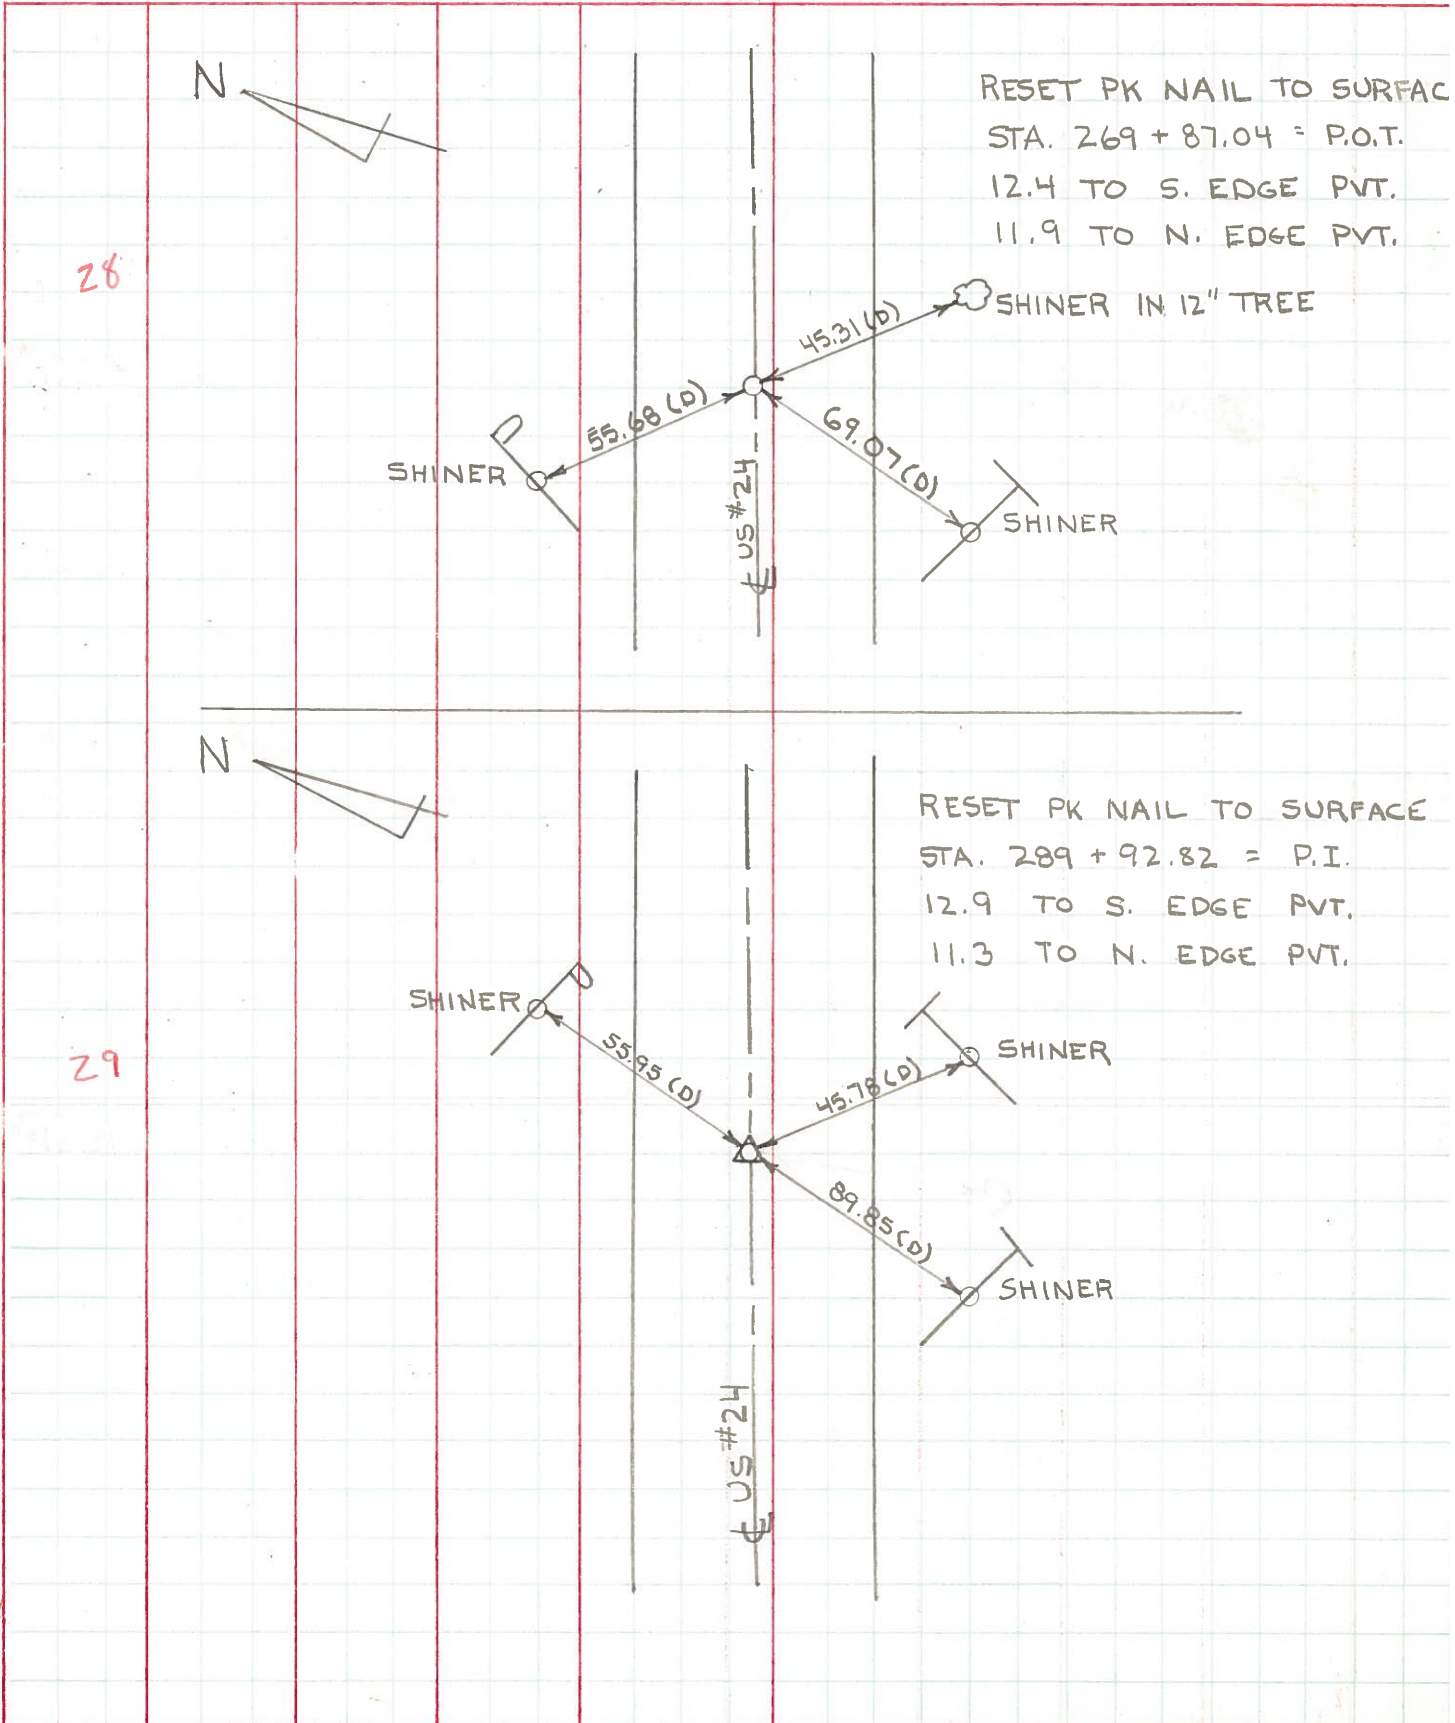 N
RESET PK NAIL TO SURFAC
STA. 269 + 87.04 = P.O.T.
12.4 TO S. EDGE PVT.
11.9 TO N. EDGE PVT.
28
SHINER IN 12" TREE
45.31 (D)
55.68 (D)
69.07 (D)
P
SHINER
T
SHINER
℄ US #24
N
RESET PK NAIL TO SURFACE
STA. 289 + 92.82 = P.I.
12.9 TO S. EDGE PVT.
11.3 TO N. EDGE PVT.
P
SHINER
29
55.95 (D)
45.78 (D)
T
SHINER
89.85 (D)
T
SHINER
℄ US #24